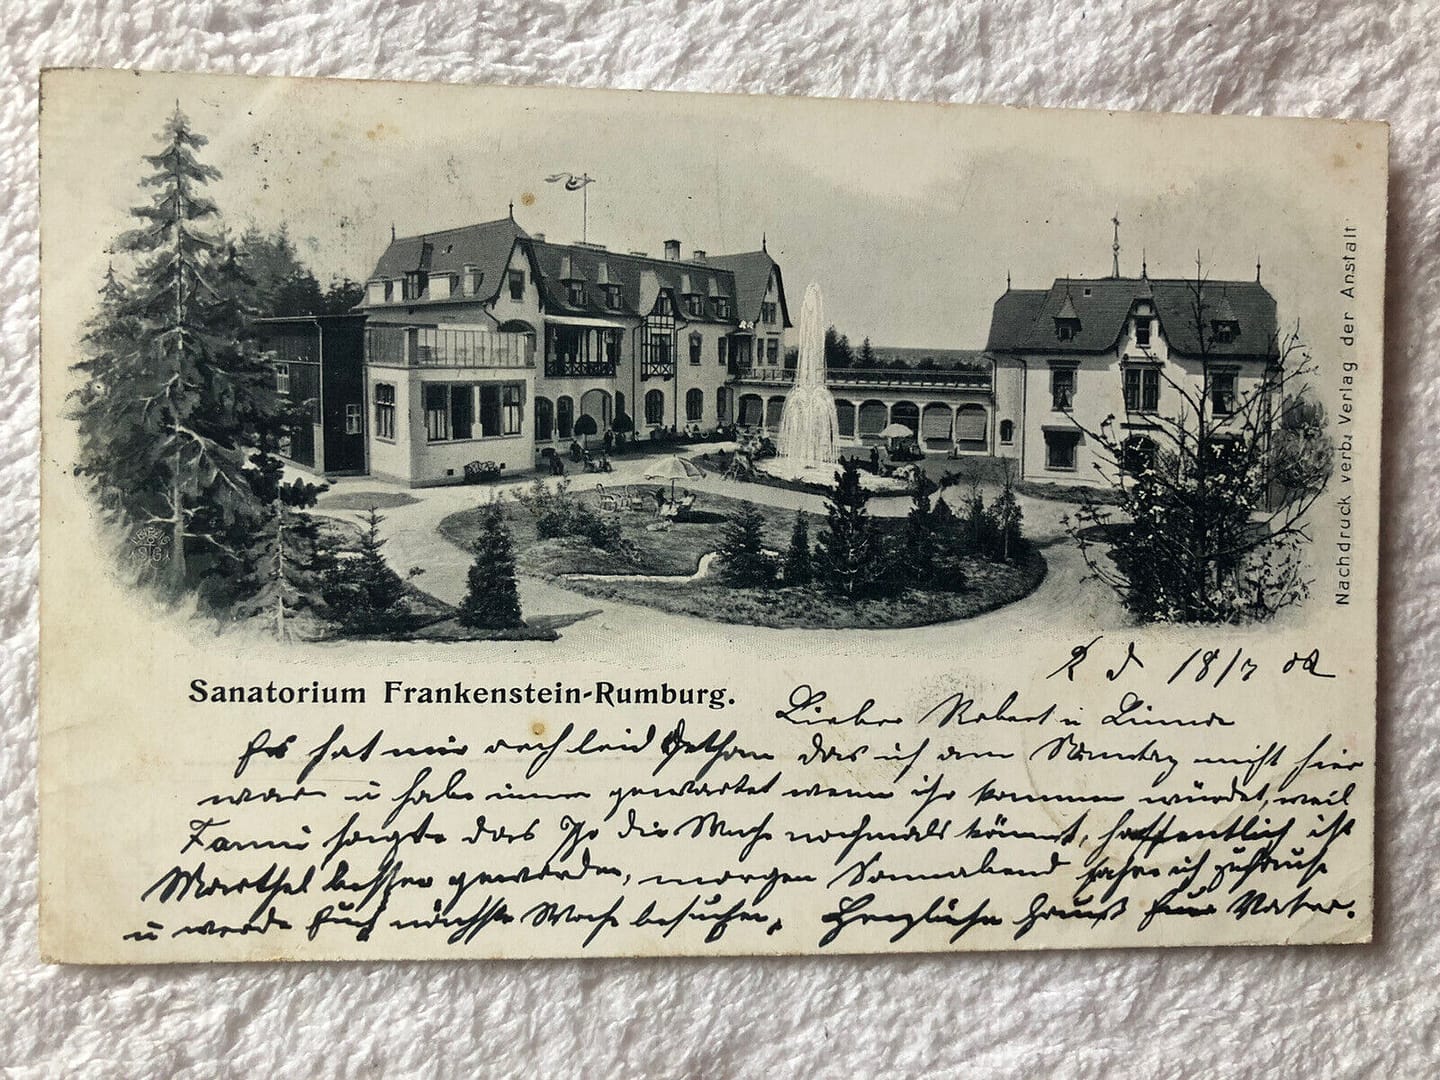 Nachdruck verb. Verlag der Anstalt
Sanatorium Frankenstein-Rumburg.
R d 18/7 02
Lieber Robert u Linna
Es hat mir auch leid gethan das ich am Sonntag nicht hier
war u habe immer gewartet wenn ihr kommen würdet, weil
Fanni sagte das Ihr die Woche nochmals könnt, hoffentlich ist
Marthel besser geworden, morgen Sonnabend fahre ich zuhause
u werde Euch nächste Woche besuchen. Herzliche Gruß Eur Vater.